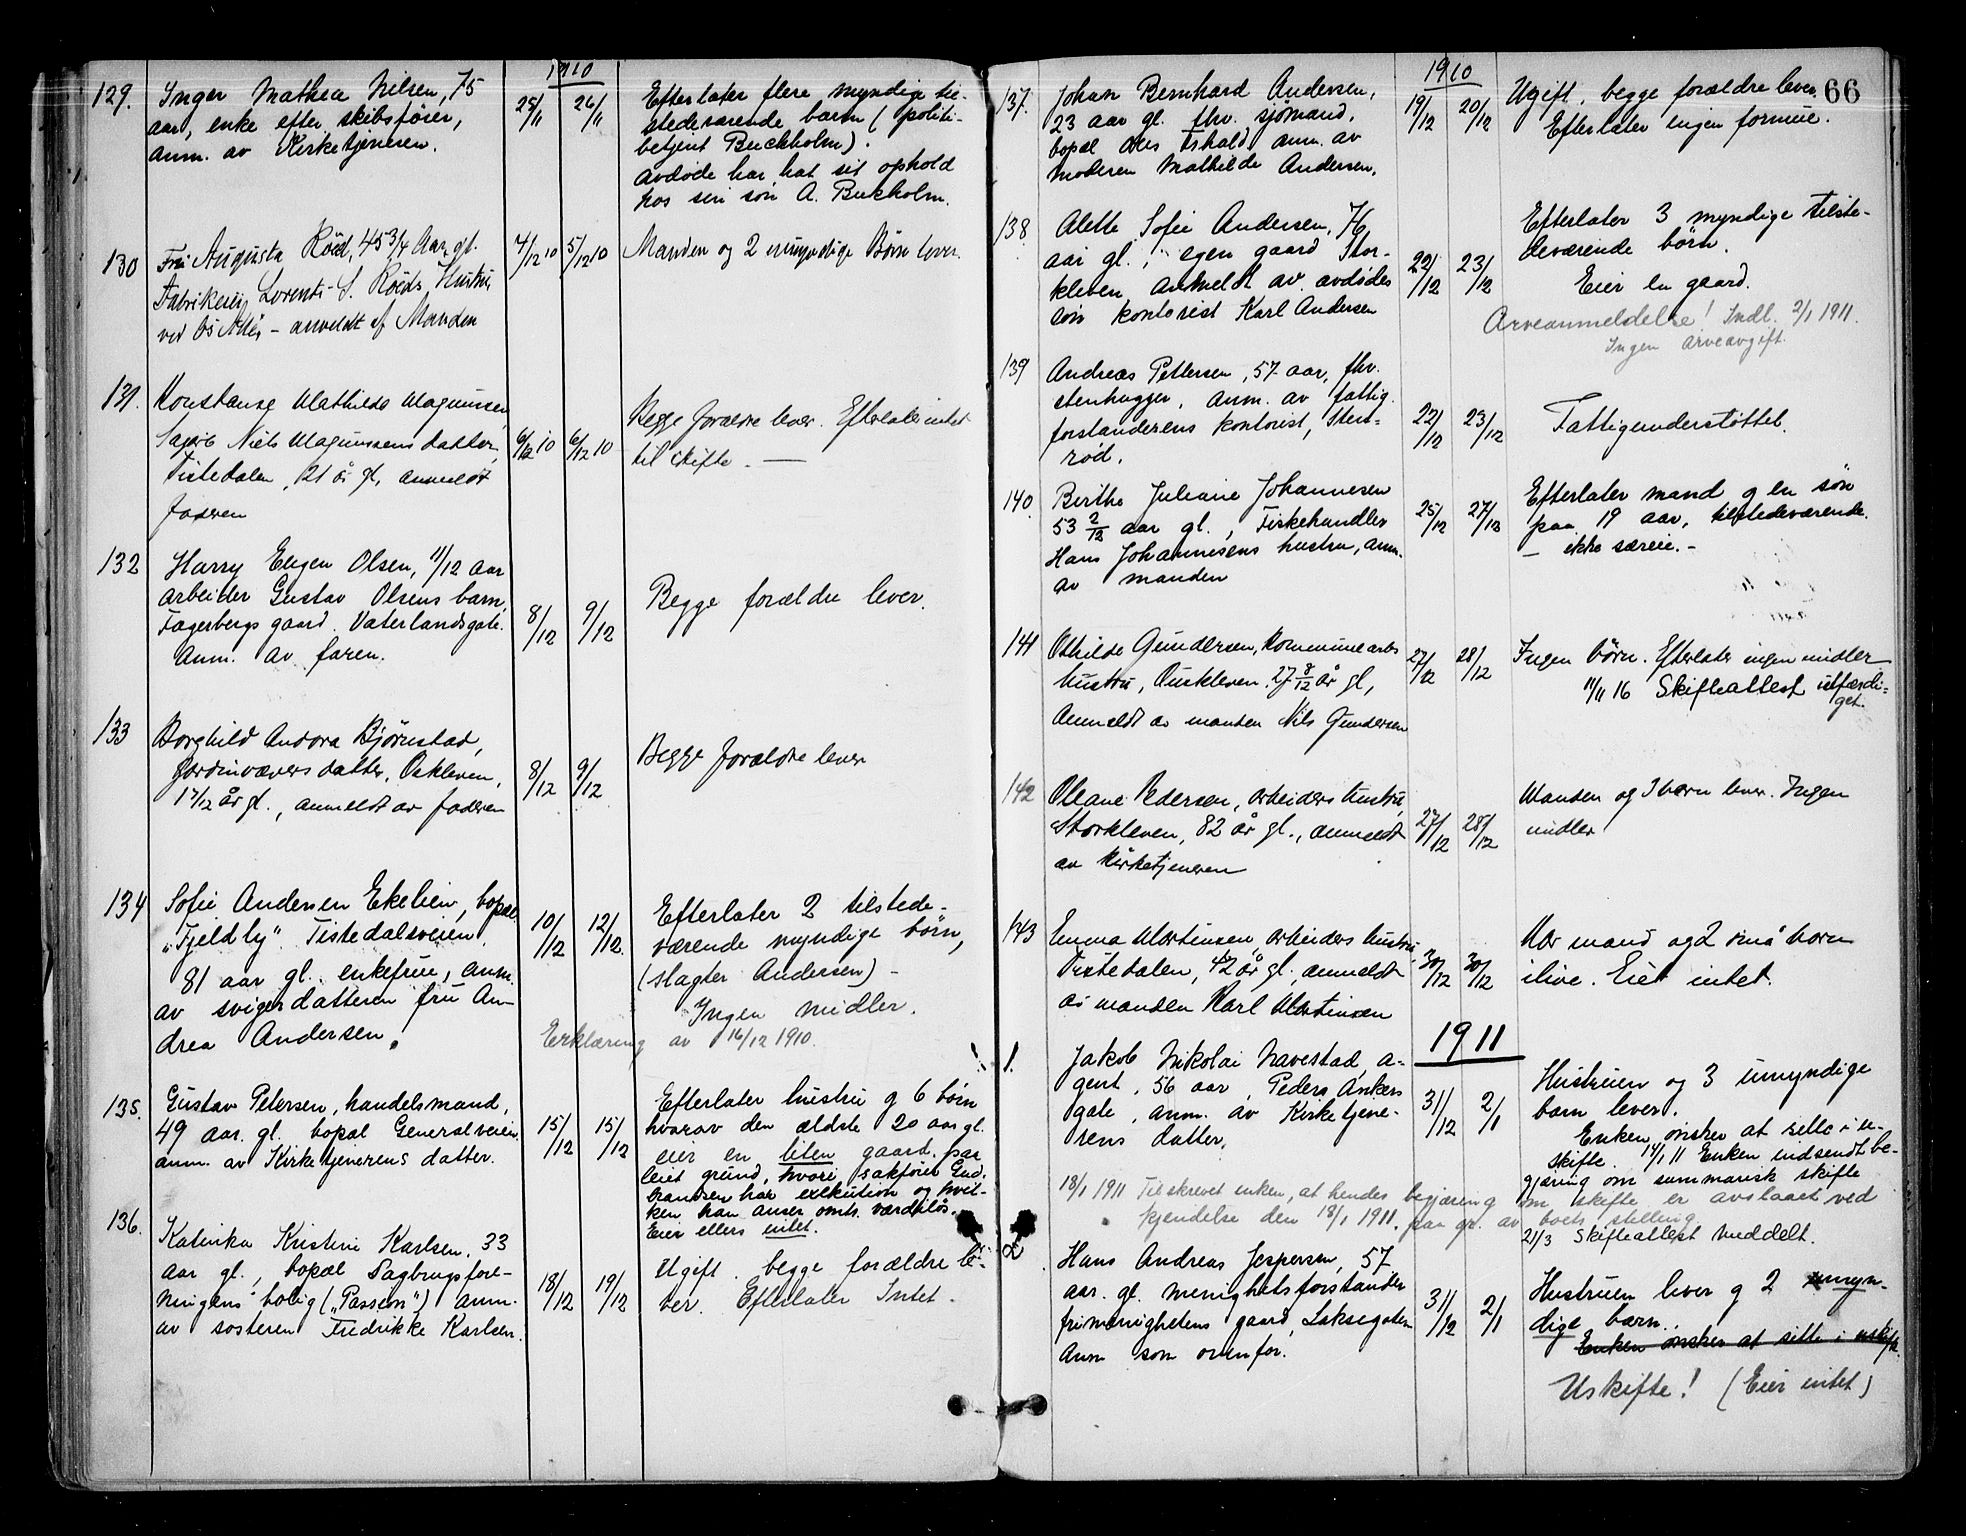 1910
129. Inger Mathea Nilsen, 75
aar, enke efter skibsfører,
anm. av Kirketjeneren.
25/11 26/11
Efterlater flere myndige til-
stedeværende barn (politi-
betjent Buckholm).
avdøde har hat sit ophold
hos sin søn A. Buckholm.
130 Fru Augusta Röed, 45 3/4 Aar gl.
Fabrikeier Lorents S. Röeds Hustru
ved Os Allé - anmeldt af Manden
4/12 10 5/12 10
Manden og 2 umyndige Børn lever.
131. Konstanse Mathilde Magnussen,
Sagarb Niels Magnussens datter,
Tistedalen, 21 år gl, anmeldt
faderen
6/12 10 6/12 10
Begge forældre lever. Efterlater intet
til skifte. —
132 Harry Eugen Olsen, 11/12 aar
arbeider Gustav Olsens barn,
Fagerbergs gaard. Vaterlandsgate.
Anm. av faren.
8/12 9/12
Begge forældre lever.
133 Borghild Andora Bjørnstad,
jordinvævers datter, Oskleven,
1 7/12 år gl., anmeldt av faderen
8/12 9/12
Begge forældre lever
134 Sofie Andersen Ekelien, bopæl
"Fjeldly" Tistedalsveien,
81 aar gl. enkefrue, anm.
av svigerdatteren fru An-
drea Andersen.
10/12 12/12
Efterlater 2 tilstede-
værende myndige børn,
(slagter Andersen) -
Ingen midler.
Erklæring av 16/12 1910.
135. Gustav Petersen, handelsmand,
49 aar. gl. bopæl Generalveien
anm. av Kirketjenerens datter.
15/12 15/12
Efterlater hustru g 6 børn
hvorav den ældste 20 aar gl.
eier en liten gaard paa
leiet grund, hvori sakfører Gud-
brandsen har exekution og hvil-
ken han anser omtr. værdiløs.
Eier ellers intet.
136. Katinka Kristine Karlsen, 33
aar gl., bopæl Sagbrugsfore-
ningens bolig ("Passem") anm.
av søsteren Fredrikke Karlsen.
18/12 19/12
Ugift. begge forældre le-
ver. Efterlater Intet -
66
1910
137. Johan Bernhard Andersen,
23 aar gl. fhv. sjømand,
bopæl Øvs anm. av
moderen Mathilde Andersen.
19/12 20/12
Ugift, begge forældre lever.
Efterlater ingen formue.
138 Alette Sofie Andersen, 76
aar gl., egen gaard Stor-
kleven Anmeldt av avdødes
søn kontorist Karl Andersen
22/12 23/12
Efterlater 3 myndige tilste-
deværende børn.
Eier en gaard.
Arveanmeldelse! Indl. 2/1 1911.
Ingen arveavgift.
139 Andreas Pettersen, 57 aar, fhv.
stenhugger, Anm. av fattig-
forstanderens kontorist, Stens-
rød.
22/12 23/12
Fattigunderstøttet.
140. Berthe Juliane Johannesen
53 2/12 aar gl., Fiskehandler
Hans Johannesens hustru, anm.
av manden
25/12 27/12
Efterlater mand g en søn
paa 19 aar, tilstedeværende.
— ikke særeie. -
141 Othilde Gundersen, Kommunearb
hustru, Ouskleven. 27 8/12 år gl,
Anmeldt av manden Nils Gundersen
27/12 28/12
Ingen børn. Efterlater ingen midler
11/11 16 Skifteattest utfærdi-
get.
142 Oleane Pedersen, arbeiders hustru,
Storkleven, 82 år gl., anmeldt
av kirketjeneren
27/12 28/12
Manden og 3 børn lever. Ingen
midler
143 Emma Martinsen, arbeiders hustru
Tistedalen, 42 år gl., anmeldt
av manden Karl Martinsen
30/12 30/12
Har mand og 2 små børn
ilive. Eier intet.
1911
1. Jakob Nikolai Navestad, a-
gent, 56 aar, Peders Ankers
gate, anm. av Kirketjene-
rens datter.
31/12 2/1
Hustruen og 3 umyndige
barn lever.
Enken ønsker at sitte i u-
skifte. 14/1 11 Enken indsendt be-
gjæring om summarisk skifte
18/1 1911 Tilskrevet enken, at hendes begjæring om skifte er avslaaet ved
kjendelse den 18/1 1911, paa gr. av boets stilling.
21/3 Skifteattest meddelt.
2 Hans Andreas Jespersen, 57
aar. gl. menighetsforstander
frimenighetens gaard, Laksegaten
Anm som ovenfor.
31/12 2/1
Hustruen lever g 2 umyn-
dige børn.
Enken ønsker at sitte i uskifte.
Uskifte! (Eier intet)